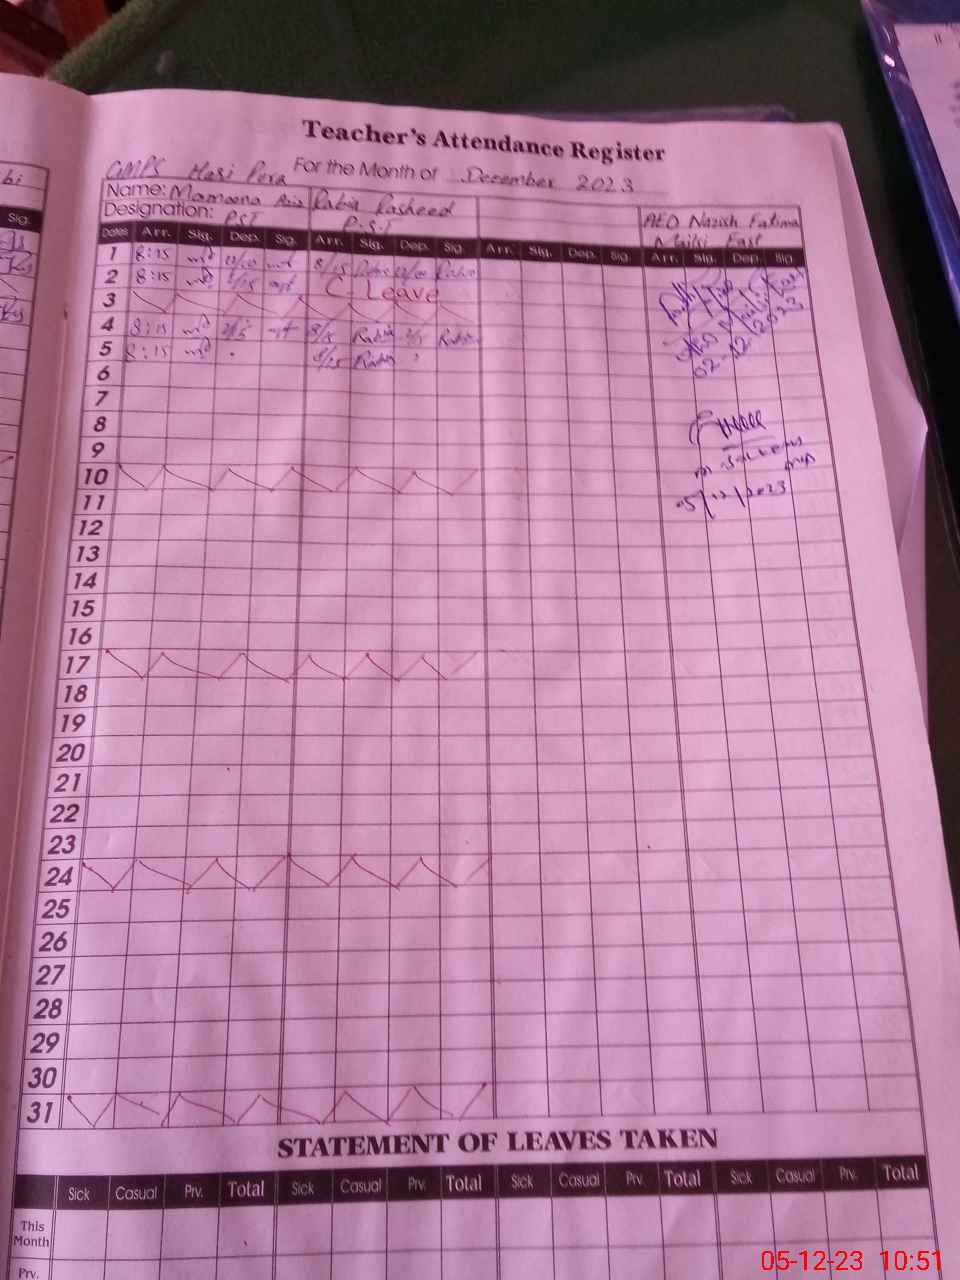 Teacher's Attendance Register
GMPS Hasi Pora For the Month of December 2023
bi
Name: Mamoona Rabia Rasheed AEO Nazish Fatima
Designation: PST P.S.T East
Sig.
Dates Arr. Sig. Dep. Sig. Arr. Sig. Dep. Sig. Arr. Sig. Dep. Sig. Arr. Sig. Dep. Sig.
1 8:15 8/15 Rabia
2 8:15 C-Leave
3
4 8:15 8/15 Rabia Rabia
5 8:15 8/15 Rabia
02-12-2023
6
7
8
9
10
11
05/12/2023
12
13
14
15
16
17
18
19
20
21
22
23
24
25
26
27
28
29
30
31
STATEMENT OF LEAVES TAKEN
Sick Casual Prv. Total Sick Casual Prv. Total Sick Casual Prv. Total Sick Casual Prv. Total
This
Month
Prv.
05-12-23 10:51